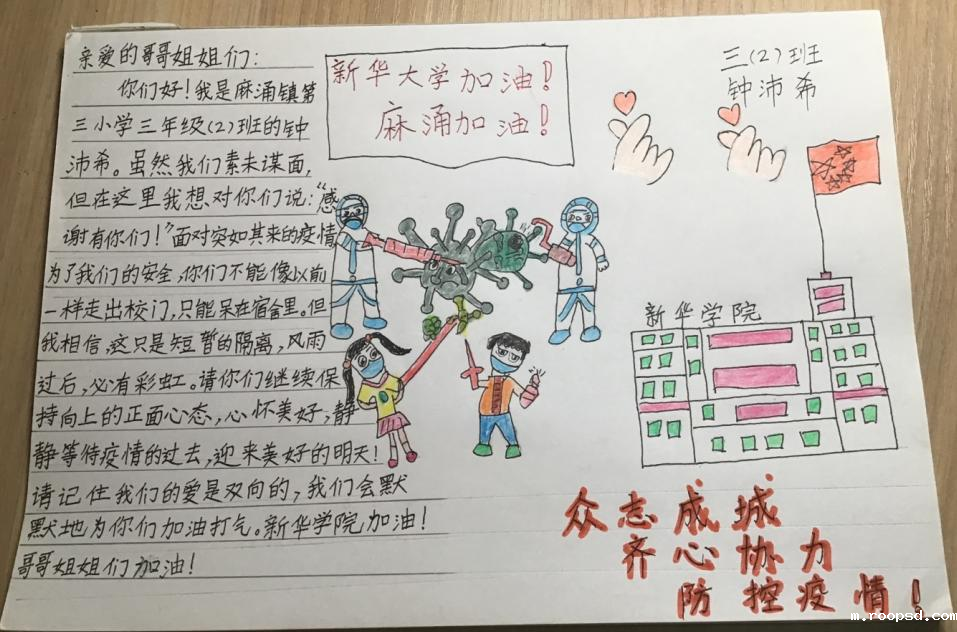 亲爱的哥哥姐姐们：
你们好！我是麻涌镇第
三小学三年级（2）班的钟
沛希。虽然我们素未谋面，
但在这里我想对你们说：“感
谢有你们！”面对突如其来的疫情
为了我们的安全，你们不能像以前
一样走出校门，只能呆在宿舍里。但
我相信，这只是短暂的隔离，风雨
过后，必有彩虹。请你们继续保
持向上的正面心态，心怀美好，静
静等待疫情的过去，迎来美好的明天！
请记住我们的爱是双向的，我们会默
默地为你们加油打气。新华学院加油！
哥哥姐姐们加油！
新华大学加油！
麻涌加油！
三（2）班
钟沛希
新华学院
众志成城
齐心协力
防控疫情！
m.roopsd.com